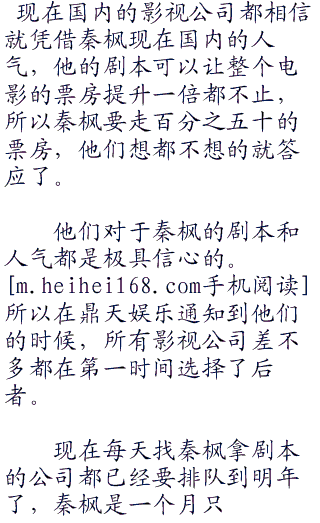 现在国内的影视公司都相信
就凭借秦枫现在国内的人
气，他的剧本可以让整个电
影的票房提升一倍都不止，
所以秦枫要走百分之五十的
票房，他们想都不想的就答
应了。
他们对于秦枫的剧本和
人气都是极具信心的。
[m.heihei168.com手机阅读]
所以在鼎天娱乐通知到他们
的时候，所有影视公司差不
多都在第一时间选择了后
者。
现在每天找秦枫拿剧本
的公司都已经要排队到明年
了，秦枫是一个月只